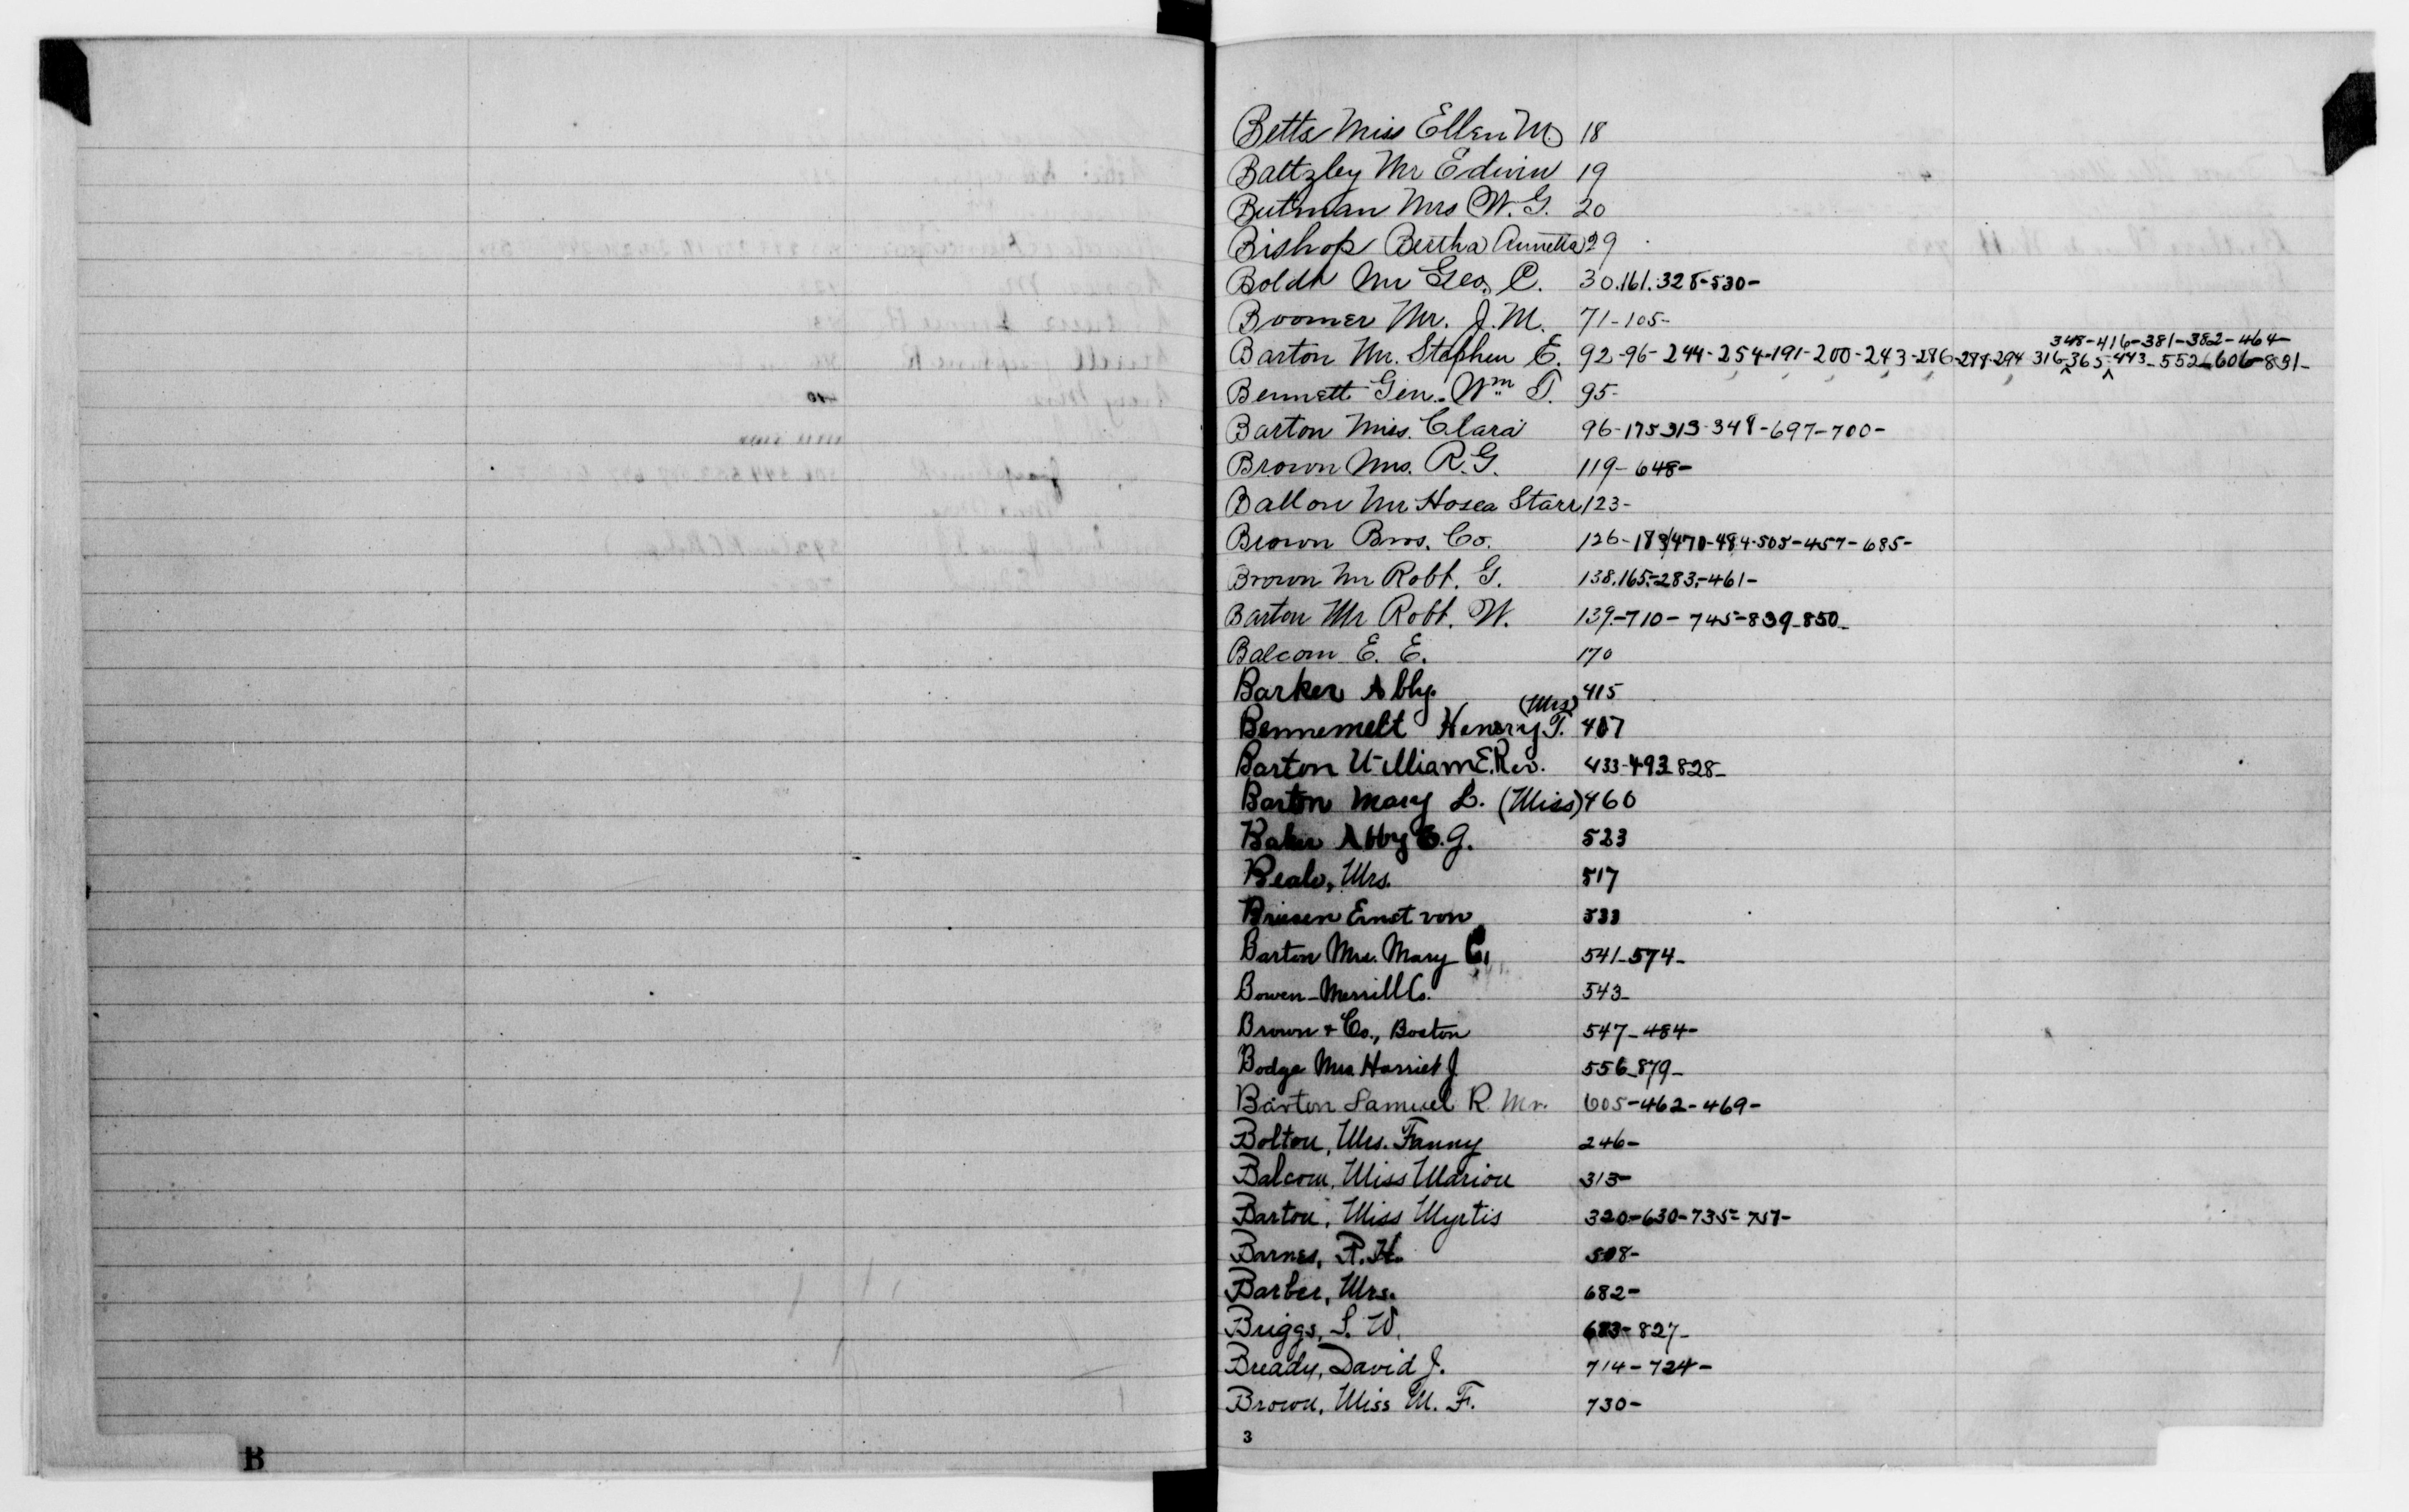 Betts Miss Ellen M. 18
Baltzley Mr Edwin 19
Butman Mrs W. G. 20
Bishop Bertha Annetta 29
Boldt Mr Geo. C. 30.161.328-530-
Boomer Mr. J. M. 71-105-
348-416-381-382-464-
Barton Mr. Stephen E. 92-96-244-254-191-200-243-286-288-294 316-365-443-552-606-831-
Bennett Gen. Wm T. 95-
Barton Miss. Clara 96-175 313-348-697-700-
Brown Mrs. R. G. 119-648-
Ballou Mr Hosea Starr 123-
Brown Bros. Co. 126-183/470-484-505-457-685-
Brown Mr Robt. G. 138.165-283-461-
Barton Mr Robt. W. 139-710-745-839-850-
Balcom E. E. 170
Barker Abby. 415
(Mrs)
Bennemelt Henery T. 407
Barton William E. Rev. 433-493 828-
Barton Mary L. (Miss) 460
Baker Abby E. G. 523
Beale, Mrs. 517
Briesen Ernst von 533
Barton Mrs. Mary C. 541-574-
Bowen-Merrill Co. 543-
Brown & Co., Boston 547-484-
Bodge Mrs. Harriet J. 556-879-
Barton Samuel R. Mr. 605-462-469-
Bolton, Mrs. Fanny 246-
Balcom, Miss Marion 313-
Barton, Miss Myrtis 320-630-735-757-
Barnes, R. H. 508-
Barber, Mrs. 682-
Briggs, S. W. 683-827-
Bready, David J. 714-724-
Brown, Miss M. F. 730-
3
B